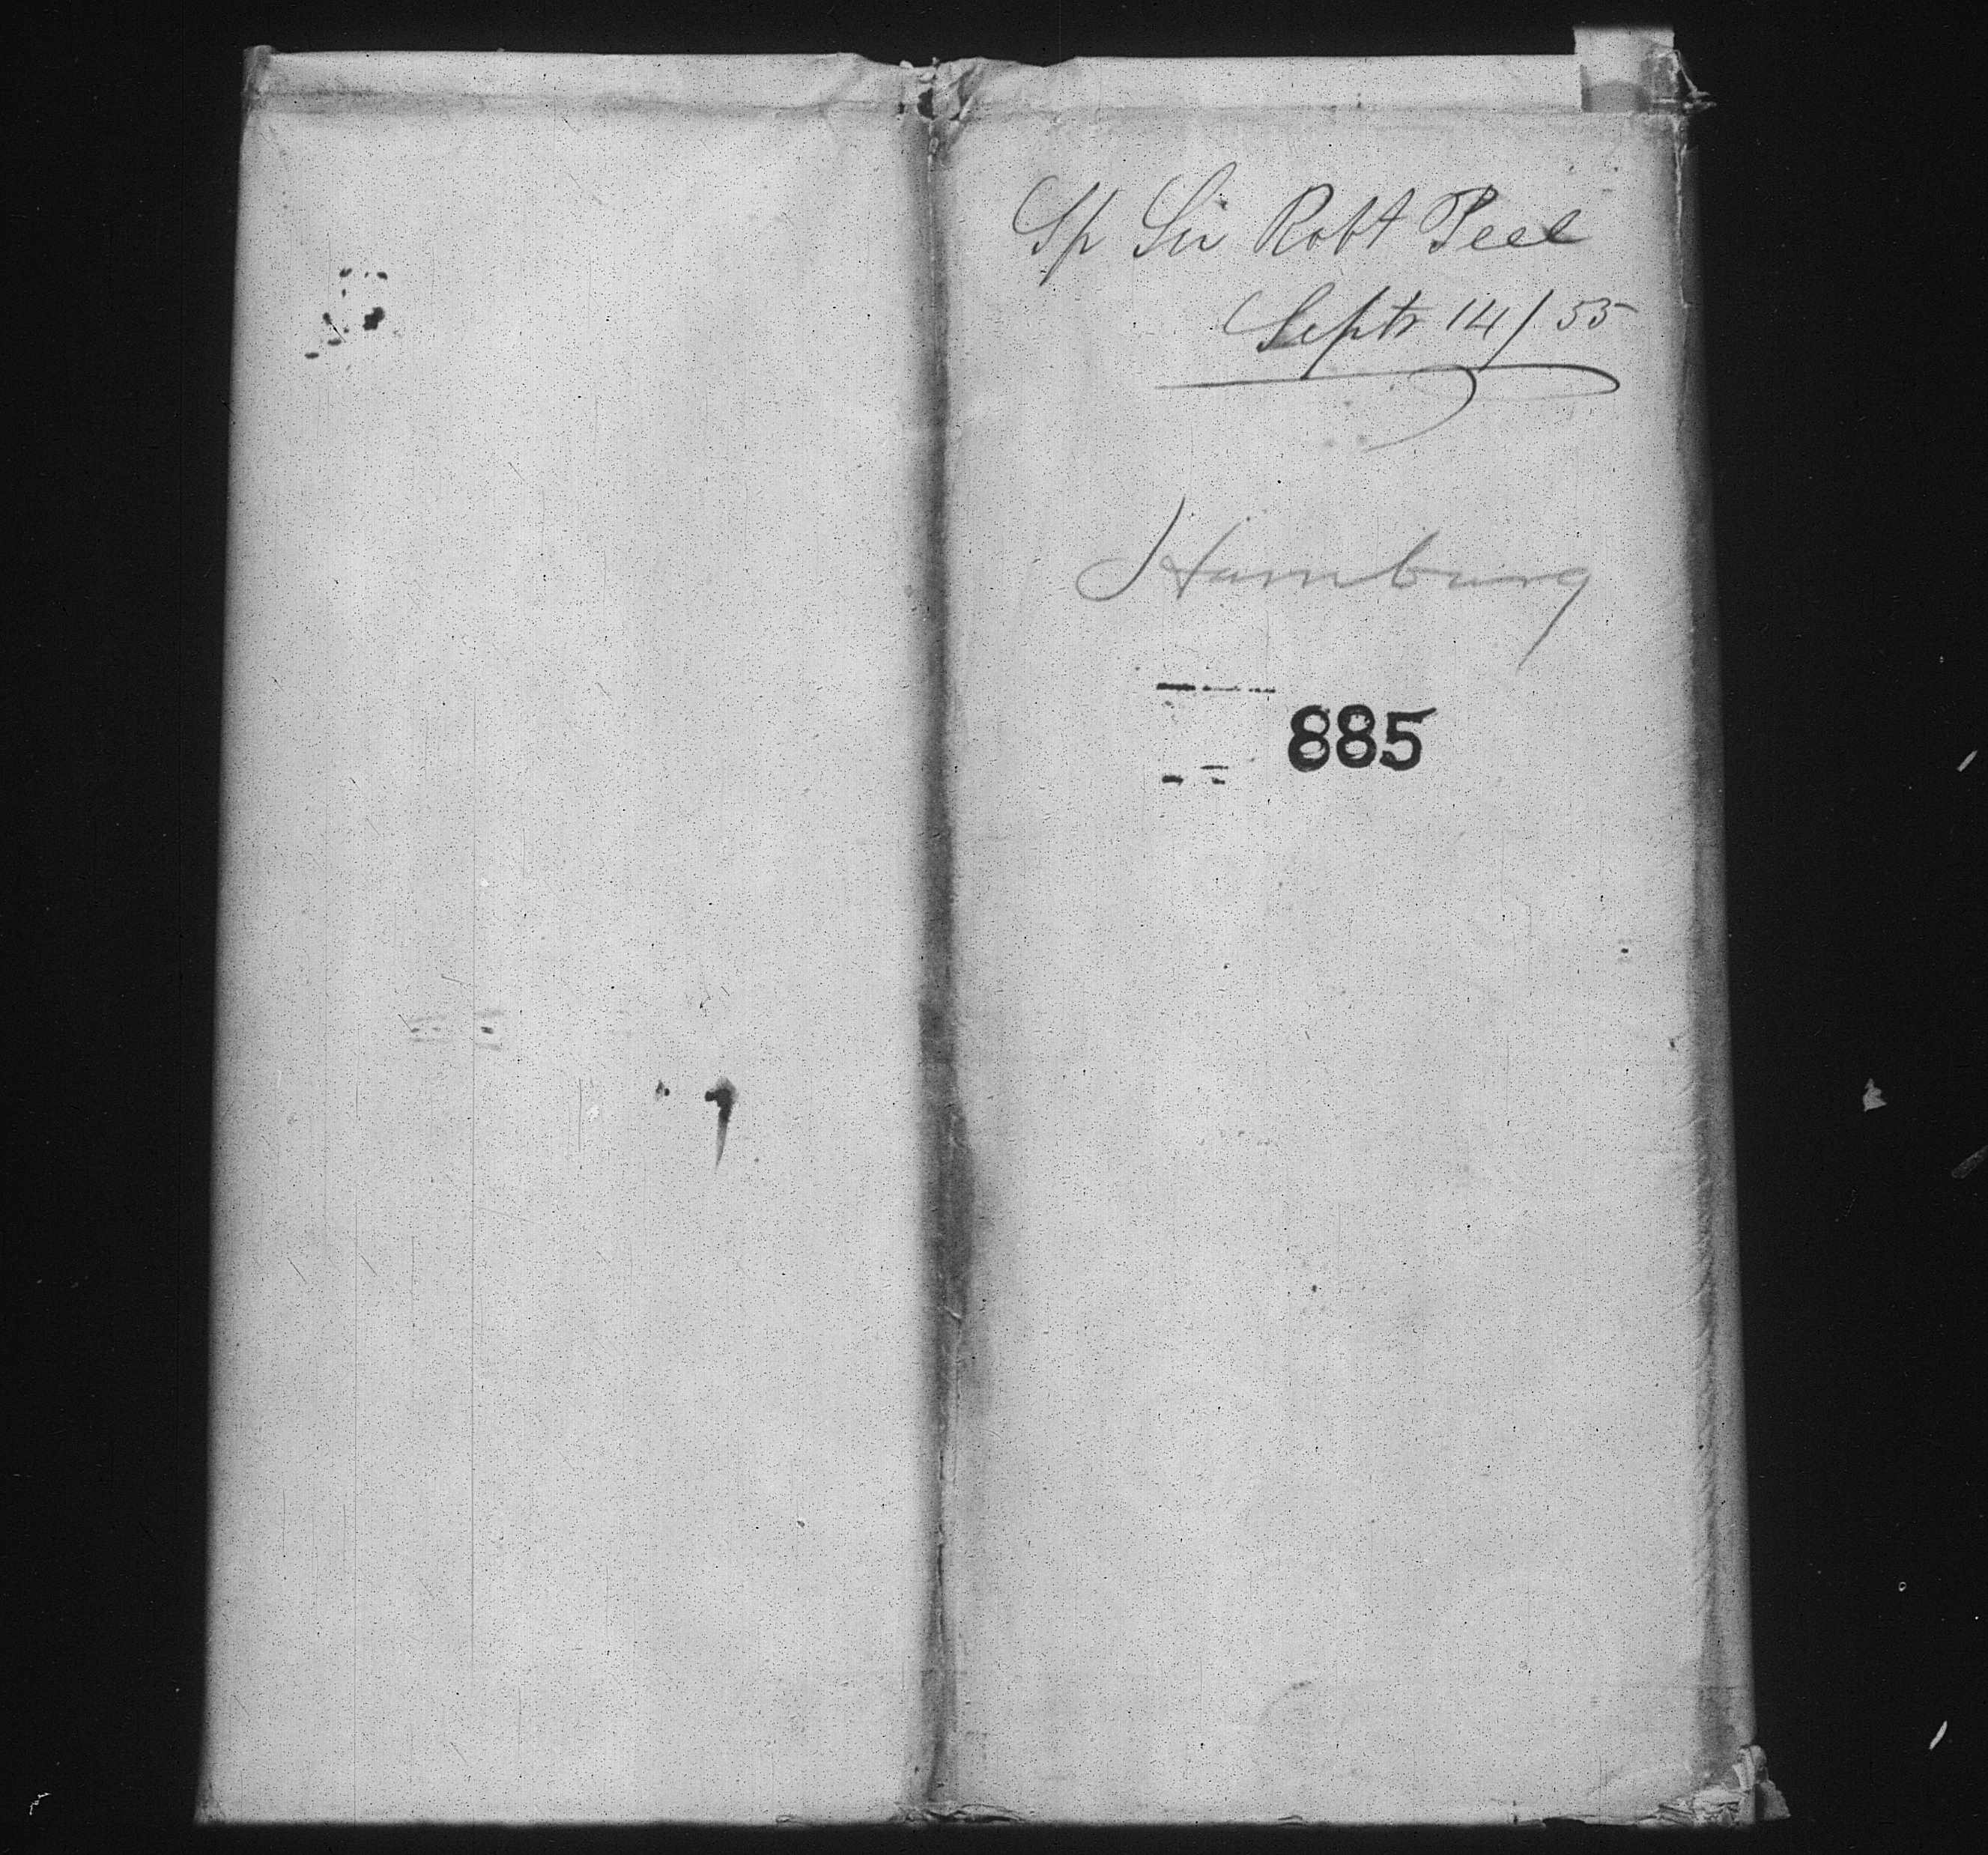 Sp Sir Robt Peel
Septr 14/55
Hamburg
885